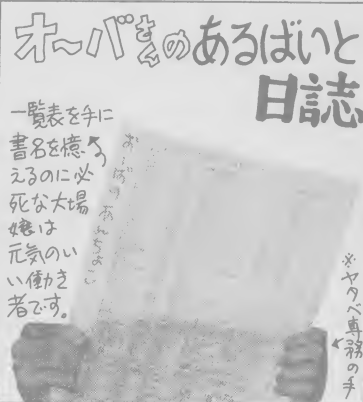 オ〜バさんのあるばいと
日誌
一覧表を手に
書名を憶
えるのに必
死な大場
嬢は
元気のい
い働き
者です。
※ヤタベ専務の手